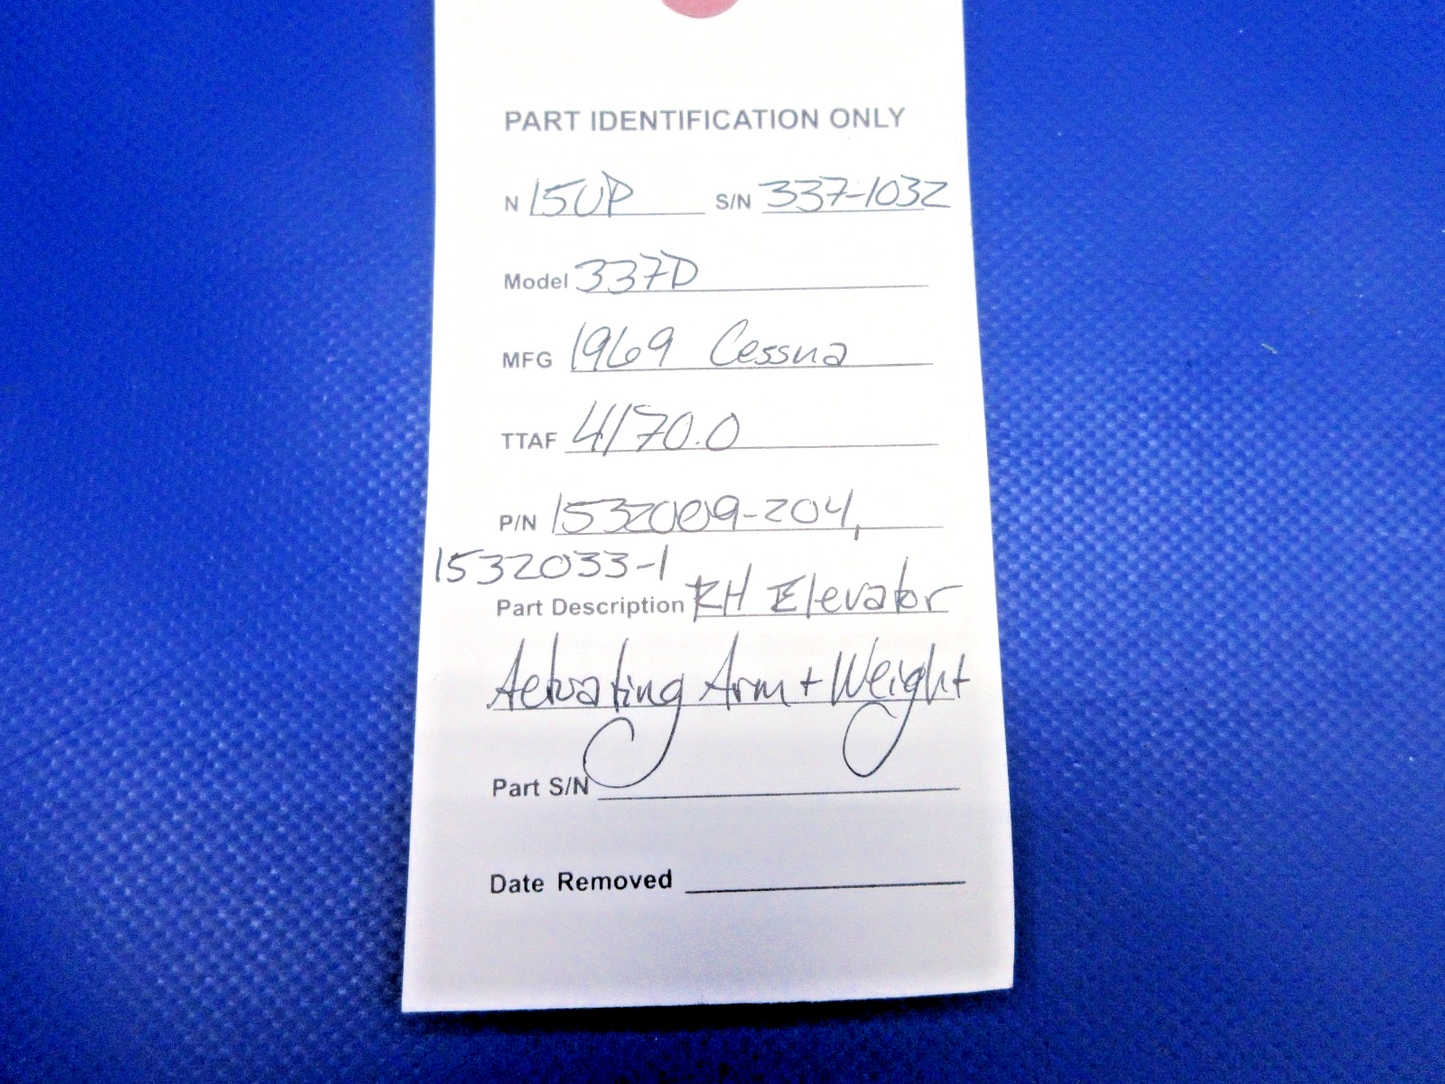 PART IDENTIFICATION ONLY
N 15UP S/N 337-1032
Model 337D
MFG 1969 Cessna
TTAF 4170.0
P/N 1532009-204,
1532033-1
Part Description RH Elevator
Actuating Arm + Weight
Part S/N
Date Removed